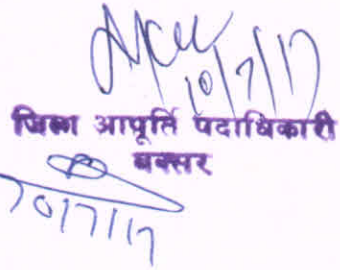 10/7/17
जिला आपूर्ति पदाधिकारी
बक्सर
10/7/17